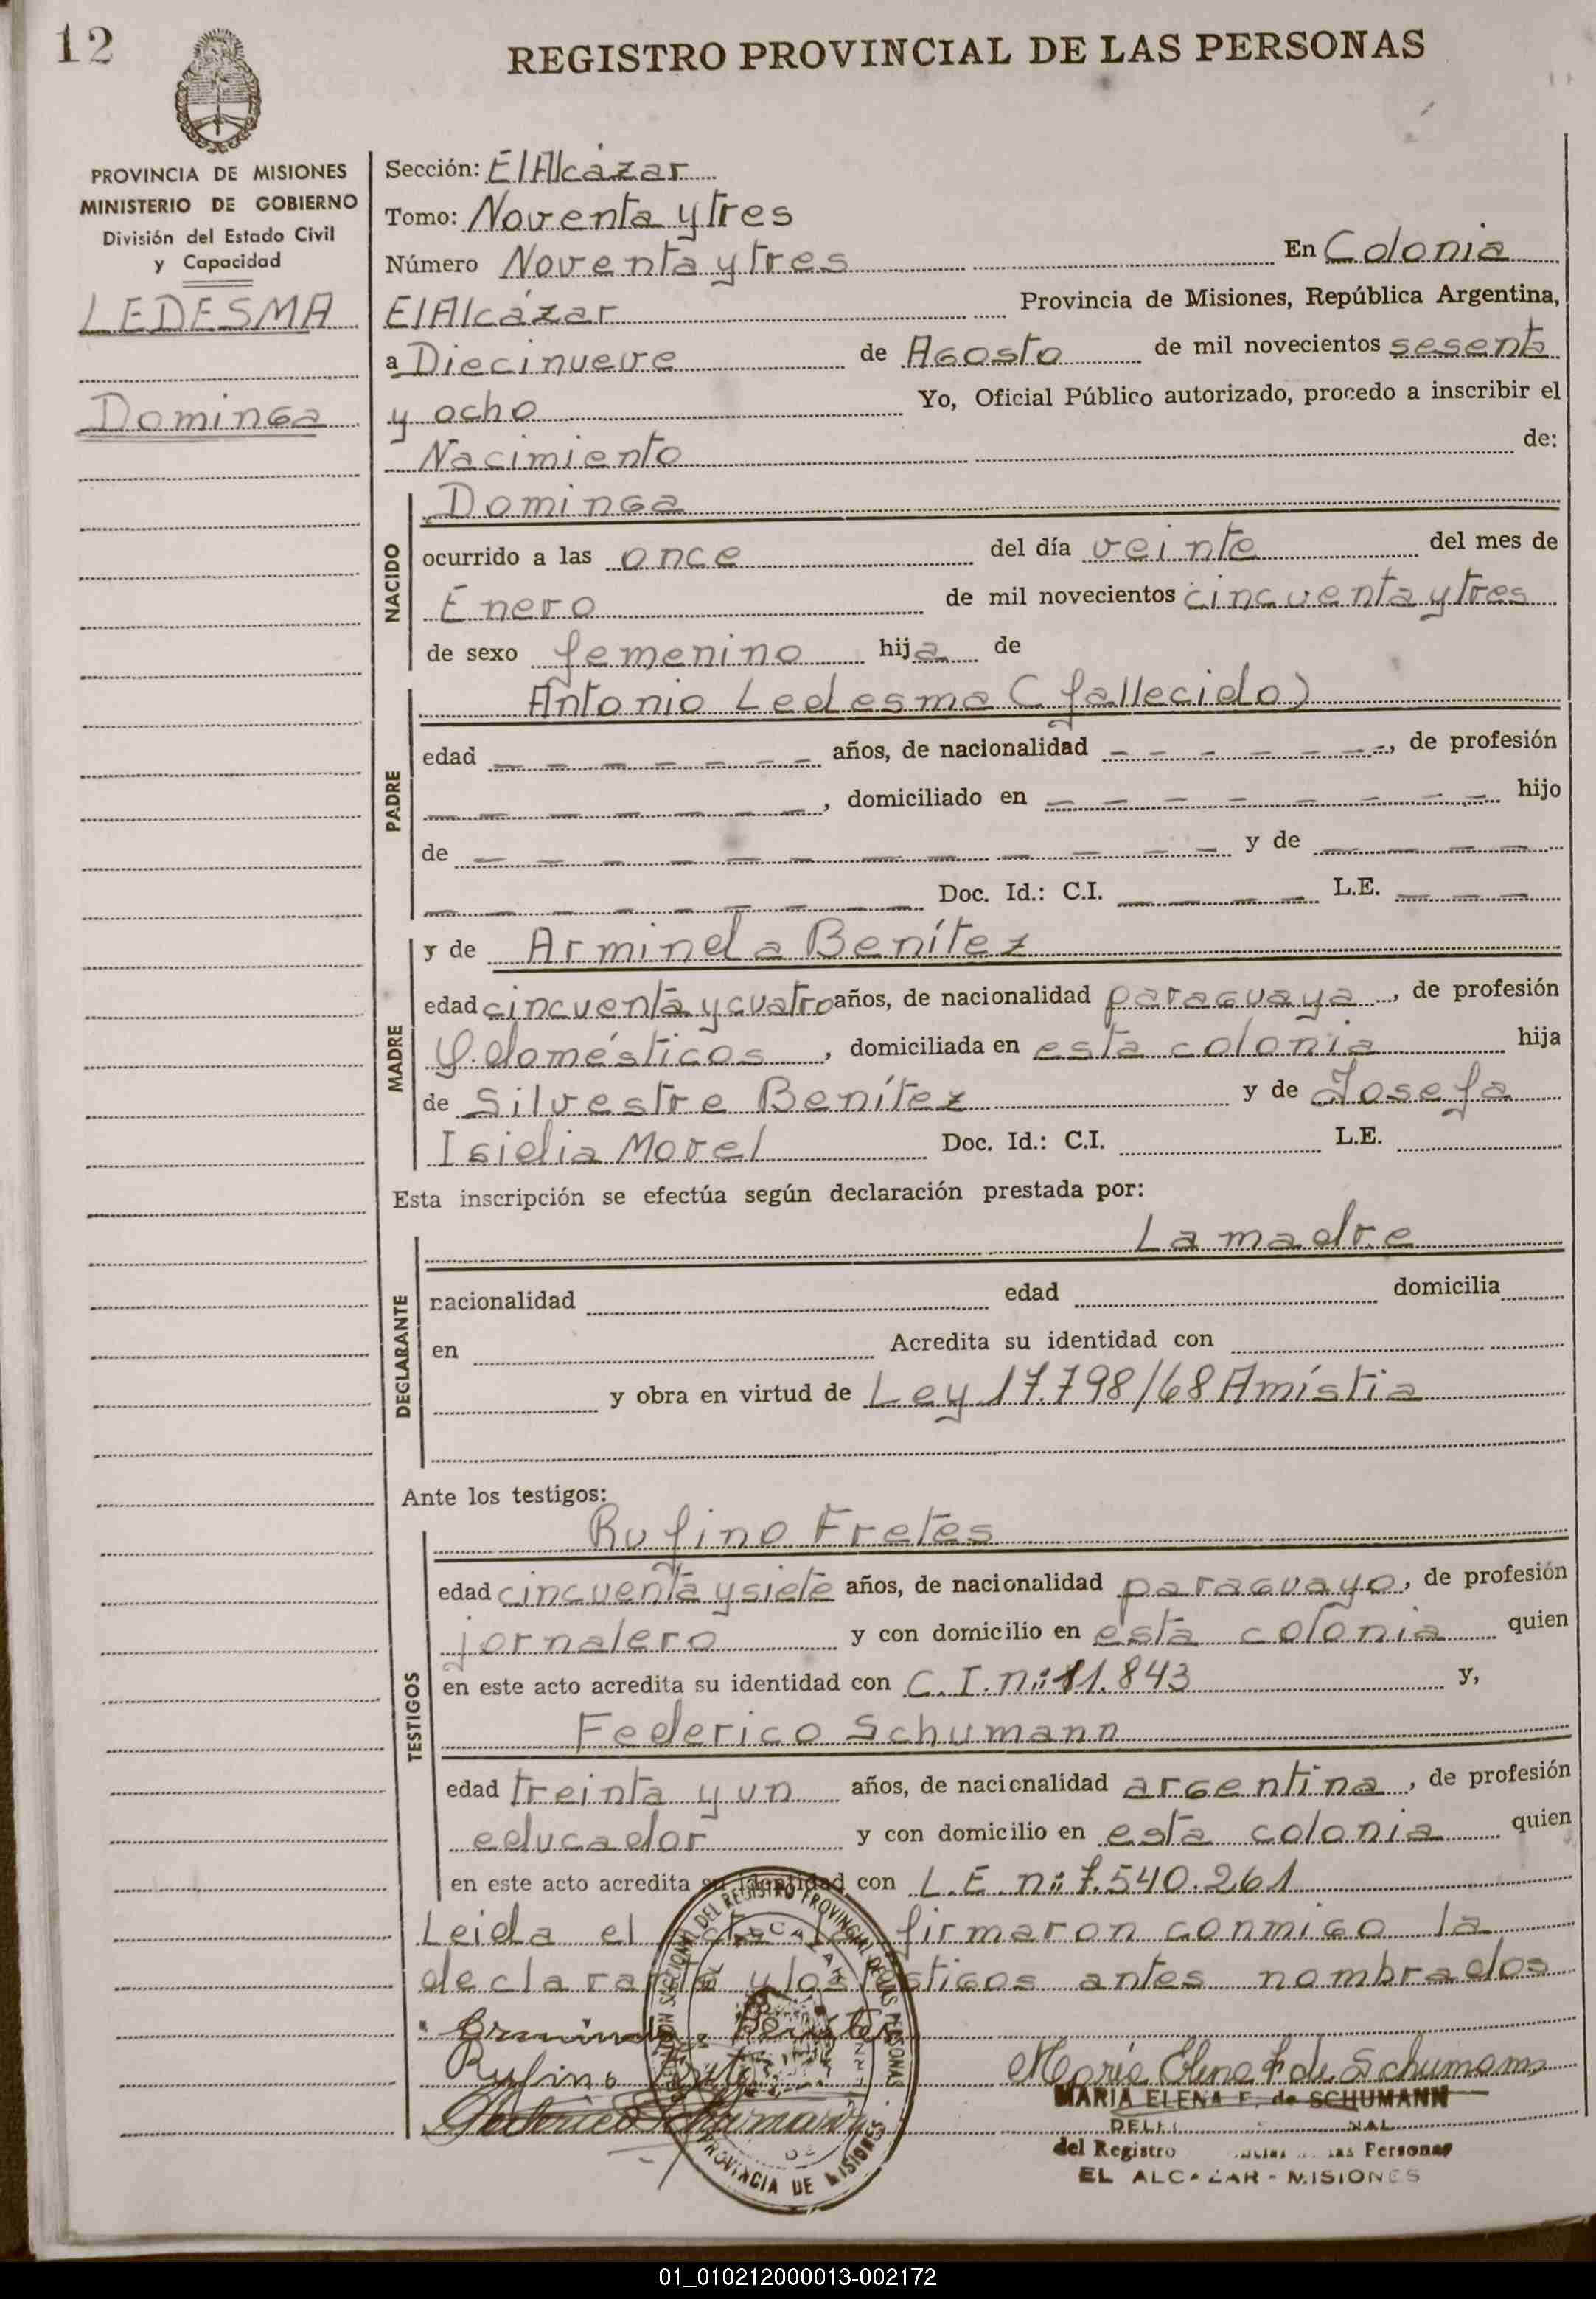 12
REGISTRO PROVINCIAL DE LAS PERSONAS
PROVINCIA DE MISIONES
MINISTERIO DE GOBIERNO
División del Estado Civil
y Capacidad
LEDESMA
Dominga
Sección: El Alcázar
Tomo: Noventa y tres
Número Noventa y tres En Colonia
El Alcázar Provincia de Misiones, República Argentina,
a Diecinueve de Agosto de mil novecientos sesenta
y ocho Yo, Oficial Público autorizado, procedo a inscribir el
Nacimiento de:
NACIDO
Dominga
ocurrido a las once del día veinte del mes de
Enero de mil novecientos cincuenta y tres
de sexo femenino hija de
PADRE
Antonio Ledesma (fallecido)
edad — — — — — — años, de nacionalidad — — — — — —, de profesión
— — — — — — —, domiciliado en — — — — — — — — hijo
de — — — — — — — — — — — — y de — — — —
— — — — — — — — Doc. Id.: C.I. — — — — L.E. — — —
MADRE
y de Arminda Benítez
edad cincuenta y cuatro años, de nacionalidad paraguaya, de profesión
Q. domésticos, domiciliada en esta colonia hija
de Silvestre Benítez y de Josefa
Isidia Morel Doc. Id.: C.I. L.E.
Esta inscripción se efectúa según declaración prestada por:
DECLARANTE
La madre
nacionalidad edad domicilia
en Acredita su identidad con
y obra en virtud de Ley 17.798/68 Amístia
Ante los testigos:
TESTIGOS
Rufino Fretes
edad cincuenta y siete años, de nacionalidad paraguayo, de profesión
jornalero y con domicilio en esta colonia quien
en este acto acredita su identidad con C.I. n: 11.843 y,
Federico Schumann
edad treinta y un años, de nacionalidad argentina, de profesión
educador y con domicilio en esta colonia quien
en este acto acredita su identidad con L.E. n: 7.540.261
Leida el acta la firmaron conmigo la
declarante y los testigos antes nombrados
Arminda Benitez
Rufino
Federico Schumann
Maria Elena F. de Schumann
MARIA ELENA F. de SCHUMANN
del Registro las Personas
EL ALCAZAR - MISIONES
PROVINCIA DE MISIONES
01_010212000013-002172